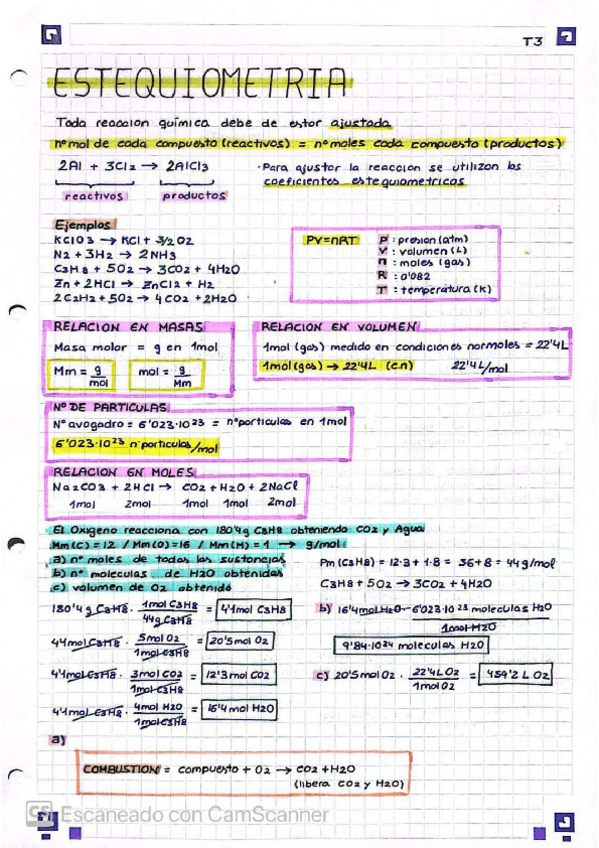 T3
ESTEQUIOMETRIA
Toda reaccion química debe de estar ajustada
nº mol de cada compuesto (reactivos) = nº moles cada compuesto (productos)
2Al + 3Cl2 → 2AlCl3
reactivos productos
· Para ajustar la reaccion se utilizan los
coeficientes estequiometricos
Ejemplos
KClO3 → KCl + 3/2O2
N2 + 3H2 → 2NH3
C3H8 + 5O2 → 3CO2 + 4H2O
Zn + 2HCl → ZnCl2 + H2
2C2H2 + 5O2 → 4CO2 + 2H2O
PV=nRT
P : presion (atm)
V : volumen (L)
n : moles (gas)
R : 0'082
T : temperatura (K)
RELACION EN MASAS
Masa molar = g en 1mol
Mm = g/mol mol = g/Mm
RELACION EN VOLUMEN
1mol (gas) medido en condiciones normales = 22'4L
1mol (gas) → 22'4L (c.n) 22'4L/mol
Nº DE PARTICULAS
Nº avogadro = 6'023·10²³ = nº particulas en 1mol
6'023·10²³ nº particulas/mol
RELACION EN MOLES
Na2CO3 + 2HCl → CO2 + H2O + 2NaCl
1mol 2mol 1mol 1mol 2mol
El Oxigeno reacciona con 180'4g C3H8 obteniendo CO2 y Agua
Mm(C) = 12 / Mm(O)=16 / Mm(H) = 1 → g/mol
a) nº moles de todas las sustancias
b) nº moleculas de H2O obtenidas
c) volumen de O2 obtenido
Pm (C3H8) = 12·3 + 1·8 = 36+8 = 44g/mol
C3H8 + 5O2 → 3CO2 + 4H2O
180'4 g C3H8 · 1mol C3H8/44g C3H8 = 4'1mol C3H8
4'1mol C3H8 · 5mol O2/1mol C3H8 = 20'5mol O2
4'1mol C3H8 · 3mol CO2/1mol C3H8 = 12'3mol CO2
4'1mol C3H8 · 4mol H2O/1mol C3H8 = 16'4mol H2O
a)
b) 16'4mol H2O · 6'023·10²³ moleculas H2O/1mol H2O
9'84·10²⁴ moleculas H2O
c) 20'5mol O2 · 22'4L O2/1mol O2 = 459'2 L O2
COMBUSTION = compuesto + O2 → CO2 + H2O
(libera CO2 y H2O)
CS Escaneado con CamScanner